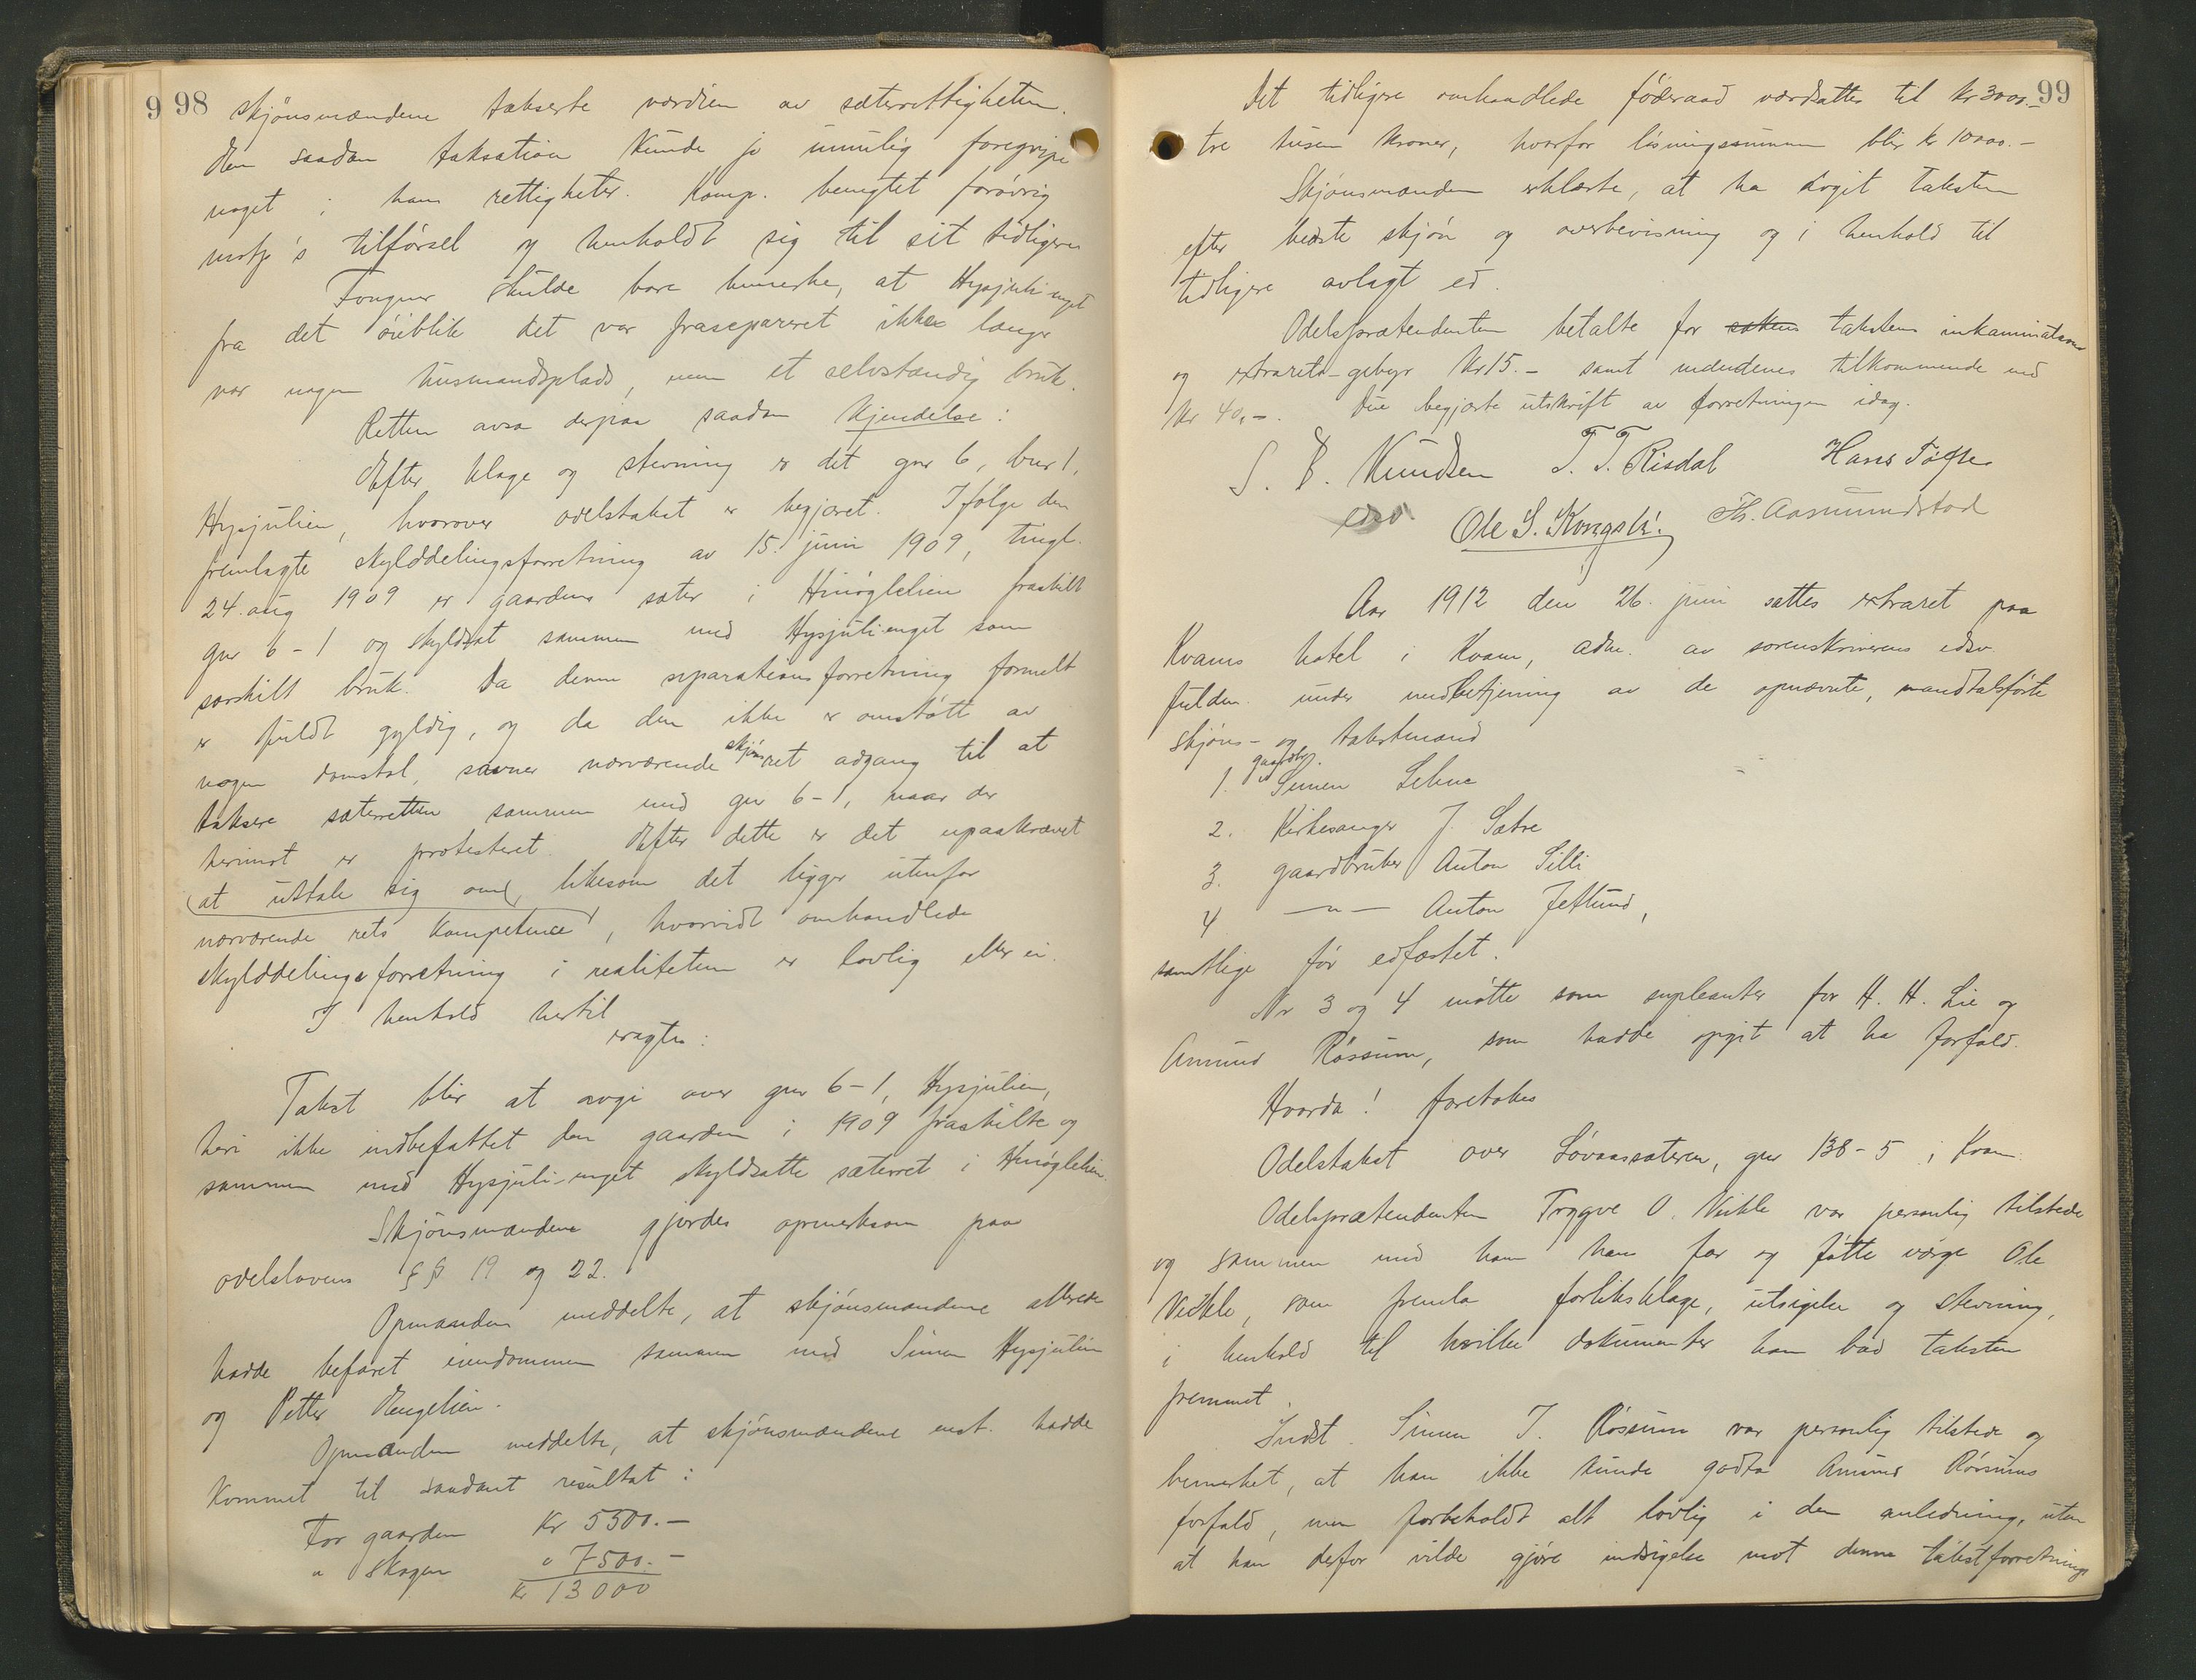 98
skjönsmændene takserte værdien av sæterrettigheten.
En saadan taksation kunde jo umulig foregripe
noget i hans rettigheter. Komp. benegtet forövrig
motp's tilförsel og henholdt sig til sit tidligere
Fougner skulde bare bemerke, at Hysjuli-enget
fra det öieblik det var frasepareret ikke længer
var nogen husmandsplads, men et selvstændig bruk.
Retten avsa derpaa saadan Kjendelse:
Efter klage og stevning er det gnr 6, bnr 1,
Hysjulien, hvorover odelstakst er begjæret. Ifölge den
fremlagte skylddelingsforretning av 15. juni 1909, tingl.
24. aug 1909 er gaardens sæter i Hinöglelien fraskilt
gnr 6-1 og skyldsat sammen med Hysjuli-enget som
særskilt bruk. Da denne separationsforretning formelt
er fuldt gyldig, og da den ikke er omstött av
nogen domstol, savner nærværende skjönsret adgang til at
taksere sæterretten sammen med gnr 6-1, naar der
herimot er protesteret. Efter dette er det upaakrævet
at uttale sig om, likesom det ligger utenfor
nærværende rets kompetence, hvorvidt omhandlede
skylddelingsforretning i realiteten er lovlig eller ei.
I henhold hertil
eragtes:
Takst blir at avgi over gnr 6-1, Hysjulien,
heri ikke indbefattet den gaarden i 1909 fraskilte og
sammen med Hysjuli-enget skyldsatte sæterret i Hinöglelien.
Skjönsmændene gjordes opmerksom paa
odelslovens §§ 19 og 22.
Opmanden meddelte, at skjönsmændene allerede
hadde befaret eiendommen sammen med Simen Hysjulien
og Petter Engelien.
Opmanden meddelte, at skjönsmændene enst. hadde
kommet til saadant resultat:
For gaarden Kr 5500.-
" skogen " 7500.-
Kr 13000
99
Det tidligere omhandlede föderaad værdsattes til kr 3000.-
tre tusen kroner, hvorfor lösningssummen blir kr 10000.-
Skjönsmændene erklærte, at ha avgit taksten
efter bedste skjön og overbevisning og i henhold til
tidligere avlagt ed.
Odelsprætendenten betalte for sakens takstens inkaminations
og extrarets-gebyr Kr 15.- samt mændenes tilkommende med
Kr 40,-. Due begjærte utskrift av forretningen idag.
S. B. Knudsen T. T. Risdal Hans Tofte
edsv. Ole S. Kongsli. Th. Aasmundstad
Aar 1912 den 26. juni sattes extraret paa
Kvams hotel i Kvam, adm. av sorenskriverens edsv.
fuldm. under medbetjening av de opnævnte, mandtalsförte
skjöns- og takstmænd
1. gaardbr. Simen Lehne
2. Kirkesanger J. Sætre
3. gaardbruker Anton Silli
4 —"— Anton Jetlund,
samtlige för edfæstet.
Nr 3 og 4 mötte som supleanter for H. H. Lie og
Amund Røssum, som hadde opgit at ha forfald.
Hvorda! foretokes
Odelstakst over Lövaassæteren, gnr 138-5 i Kvam.
Odelsprætendenten Trygve O. Veikle var personlig tilstede
og sammen med ham hans far og fötte værge Ole
Veikle, som fremla forliksklage, utsigelse og stevning,
i henhold til hvilke dokumenter han bad taksten
fremmet.
Indst. Simen T. Røssum var personlig tilstede og
bemerket, at han ikke kunde godta Amund Røssums
forfald, men forbeholdt alt lovlig i den anledning, uten
at han derfor vilde gjöre indsigelse mot denne takstforretnings